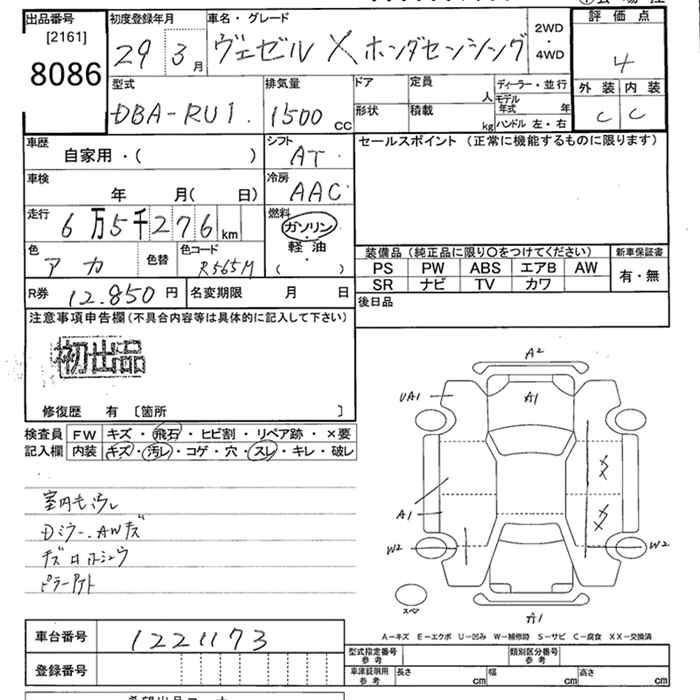 出品番号
[2161]
8086
初度登録年月
29 3月
車名・グレード
ヴェゼル X ホンダセンシング
2WD
・
4WD
評価点
4
外装 内装
C C
型式
DBA-RU1.
排気量
1500cc
ドア
定員
人
形状
積載
kg
ディーラー・並行
モデル年式 年
ハンドル 左・右
車歴
自家用・( )
シフト
AT
セールスポイント (正常に機能するものに限ります)
車検
年 月( 日)
冷房
AAC
走行
6万5千276km
燃料
ガソリン
・
軽油
( )
色
アカ
色替
色コード
R565M
装備品 (純正品に限り○をつけてください)
新車保証書
PS PW ABS エアB AW
SR ナビ TV カワ
有・無
R券 12.850円
名変期限 月 日
後日品
注意事項申告欄(不具合内容等は具体的に記入して下さい)
初出品
修復歴 有 〔箇所 〕
検査員
記入欄
FW キズ・飛石・ヒビ割・リペア跡・×要
内装 キズ・汚レ・コゲ・穴・スレ・キレ・破レ
室内モヨウレ
Dミラー、AWキズ
A2
UA1
A1
A1
W2
W2
A1
スペア
A-キズ E-エクボ U-凹み W-補修跡 S-サビ C-腐食 XX-交換済
車台番号 1221173
登録番号
型式指定番号
参考
類別区分番号
参考
車庫証明用
参考
長さ cm
幅 cm
高さ cm